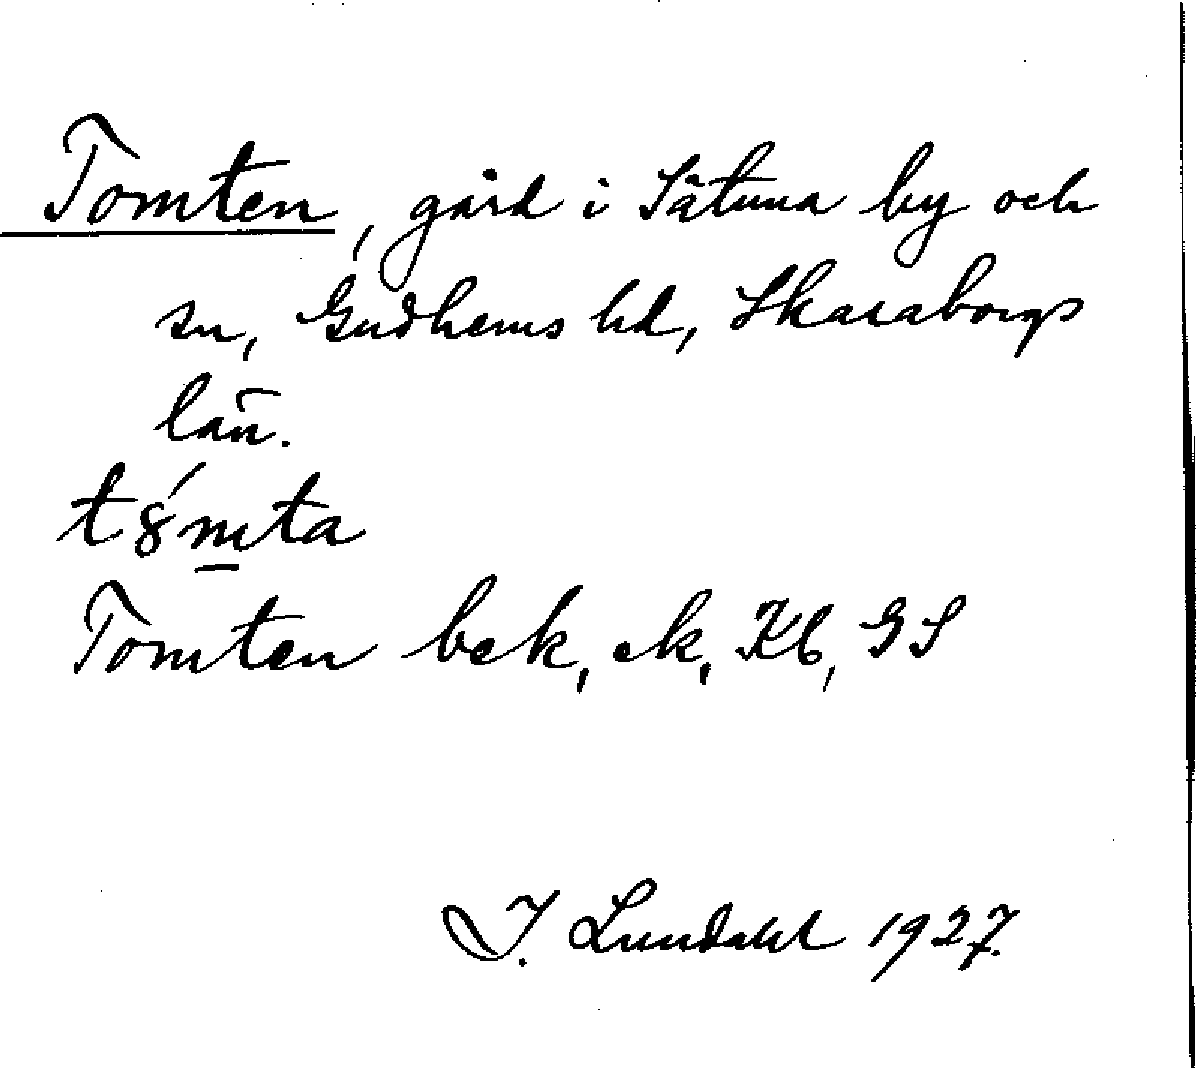 Tomten, gård i Sätuna by och
sn, Gudhems hd, Skaraborgs
län.
t8́m̲ta
Tomten bek, ek, Kb, GS
I. Lundahl 1927.